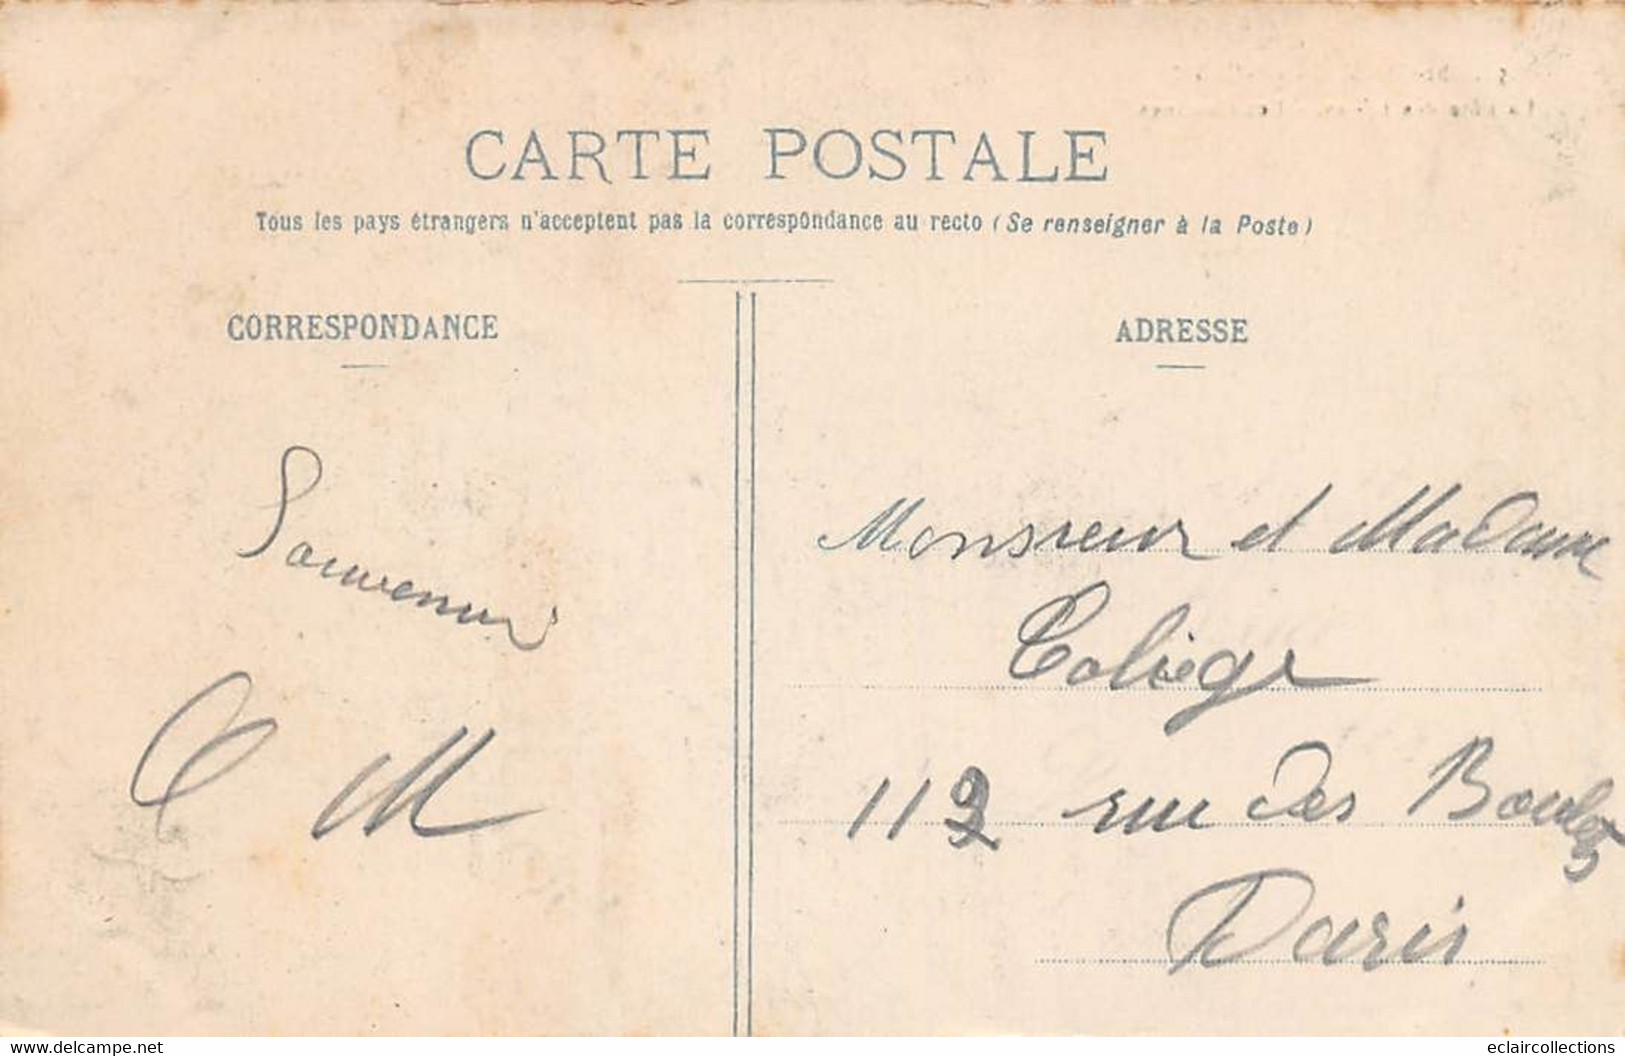 CARTE POSTALE
Tous les pays étrangers n'acceptent pas la correspondance au recto (Se renseigner à la Poste)
CORRESPONDANCE
ADRESSE
Souvenir
C M
Monsieur et Madame
Coliège
112 rue des Boulets
Paris
delcampe.net
eclaircollections